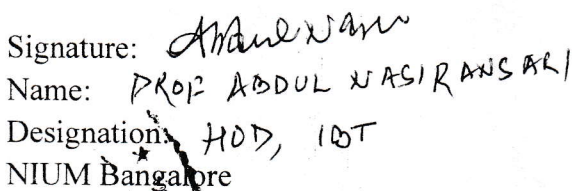 Signature: Abdul Nasir
Name: PROF ABDUL NASIR ANSARI
Designation: HOD, IBT
NIUM Bangalore